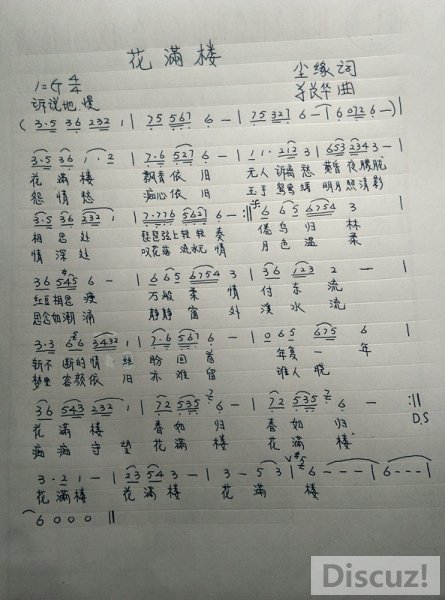 花满楼
1=G 4/4
尘缘词
曲
诉说地 慢
(3·5 36 232 1 | 75 567 6 - | 75 327 6 - | 6 072 6 - )|
3·5 36 1·2 | 7·6 527 6 - | 1·1 212 3 | 653 234 3 - |
花满楼 飘香依旧 无人诉离愁 黄昏夜朦胧
愁情愁 痴心依旧 玉手鸳鸯绣 明月照清影
3·5 36 232 1 | 7·776 5627 6 - :|| 6 65 6754 3 |
相思处 琵琶弦上轻轻奏 倦鸟归林
情深处 叹花落流水无情 月色温柔
36 545 6 - | 6 65 6754 3 | 36 123 2 - |
红豆相思瘦 万般柔情付东流
思念如潮涌 静静窗外溪水流
3·3 6 6 3432 1 | 7·6 567 6 - | 0 65 675 6 |
斩不断的情丝 盼回首 年复一年
梦里容颜依旧 亦难留 谁人晓
36 543 232 1 | 72 535 6 - | 72 535 6 - :||
花满楼 春如归 春如归 D.S
痴痴守望 花满楼 花满楼
3·2 1 - | 23 54 3 - | 3 - 5 3 | 6 - - - | 6 - - - |
花满楼 花满楼 花满楼
6 0 0 0 ||
Discuz!